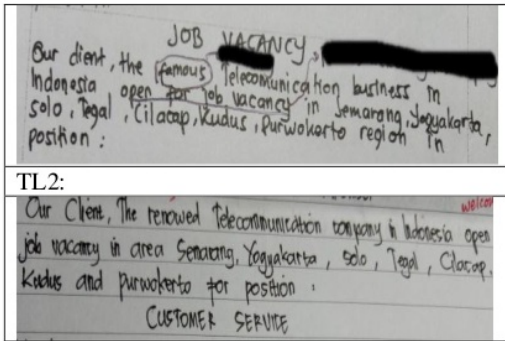 JOB VACANCY,
Our client, the famous Telecomunication business in
Indonesia open for job vacancy in Semarang, Yogyakarta,
Solo, Tegal, Cilacap, Kudus, Purwokerto region in
position :
TL2:
welcom
Our Client, The renowed Telecommunication company in Indonesia open
job vacancy in area Semarang, Yogyakarta, Solo, Tegal, Cilacap,
Kudus and purwokerto for position :
CUSTOMER SERVICE